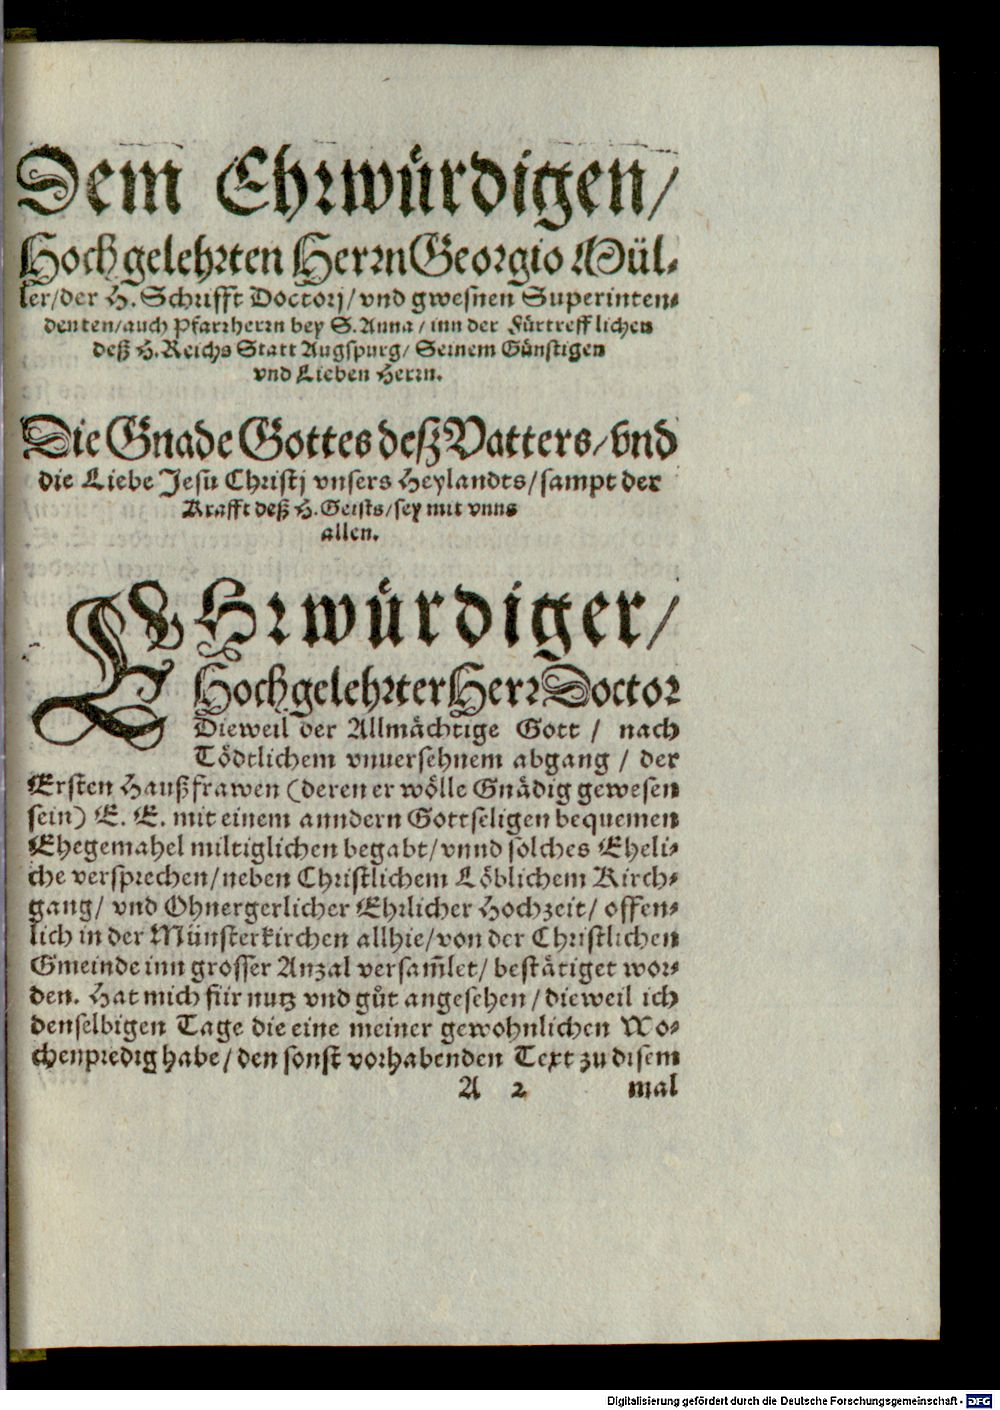 Dem Ehrwürdigen/
Hochgelehrten Herrn Georgio Mül-
ler/der H. Schrifft Doctorj/vnd gwesnen Superinten-
denten/auch Pfarrherrn bey S. Anna/inn der Fürtrefflichen
deß H. Reichs Statt Augspurg/ Seinem Günstigen
vnd Lieben Herrn.
Die Gnade Gottes deß Vatters/vnd
die Liebe Jesu Christj vnsers Heylandts/sampt der
Krafft deß H. Geists/sey mit vnns
allen.
EHrwürdiger/
Hochgelehrter Herr Doctor
Dieweil der Allmächtige Gott / nach
Tödtlichem vnuersehnem abgang / der
Ersten Haußfrawen (deren er wölle Gnädig gewesen
sein) E. E. mit einem anndern Gottseligen bequemen
Ehegemahel miltiglichen begabt/vnnd solches Eheli-
che versprechen/neben Christlichem Löblichem Kirch-
gang/ vnd Ohnergerlicher Ehrlicher Hochzeit/ offen-
lich in der Münsterkirchen allhie/von der Christlichen
Gmeinde inn grosser Anzal versam̃let/ bestätiget wor-
den. Hat mich für nutz vnd gůt angesehen/dieweil ich
denselbigen Tage die eine meiner gewohnlichen Wo-
chenpredig habe/den sonst vorhabenden Text zu disem
A 2 mal
Digitalisierung gefördert durch die Deutsche Forschungsgemeinschaft - DFG